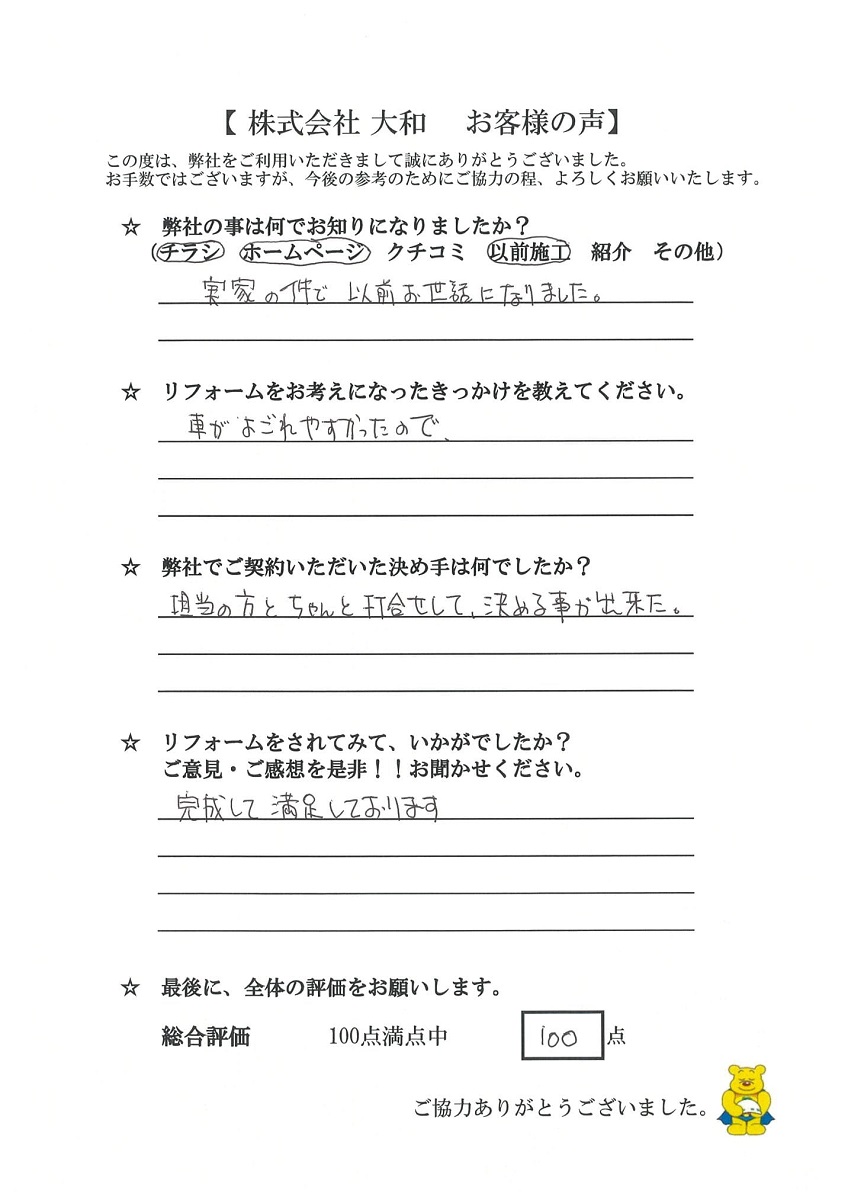 【 株式会社 大和　お客様の声】
この度は、弊社をご利用いただきまして誠にありがとうございました。
お手数ではございますが、今後の参考のためにご協力の程、よろしくお願いいたします。
☆　弊社の事は何でお知りになりましたか？
（チラシ　ホームページ　クチコミ　以前施工　紹介　その他）
実家の件で 以前お世話になりました。
☆　リフォームをお考えになったきっかけを教えてください。
車がよごれやすかったので、
☆　弊社でご契約いただいた決め手は何でしたか？
担当の方とちゃんと打合せして、決める事が出来た。
☆　リフォームをされてみて、いかがでしたか？
ご意見・ご感想を是非！！お聞かせください。
完成して 満足しております
☆　最後に、全体の評価をお願いします。
総合評価　100点満点中　100 点
ご協力ありがとうございました。